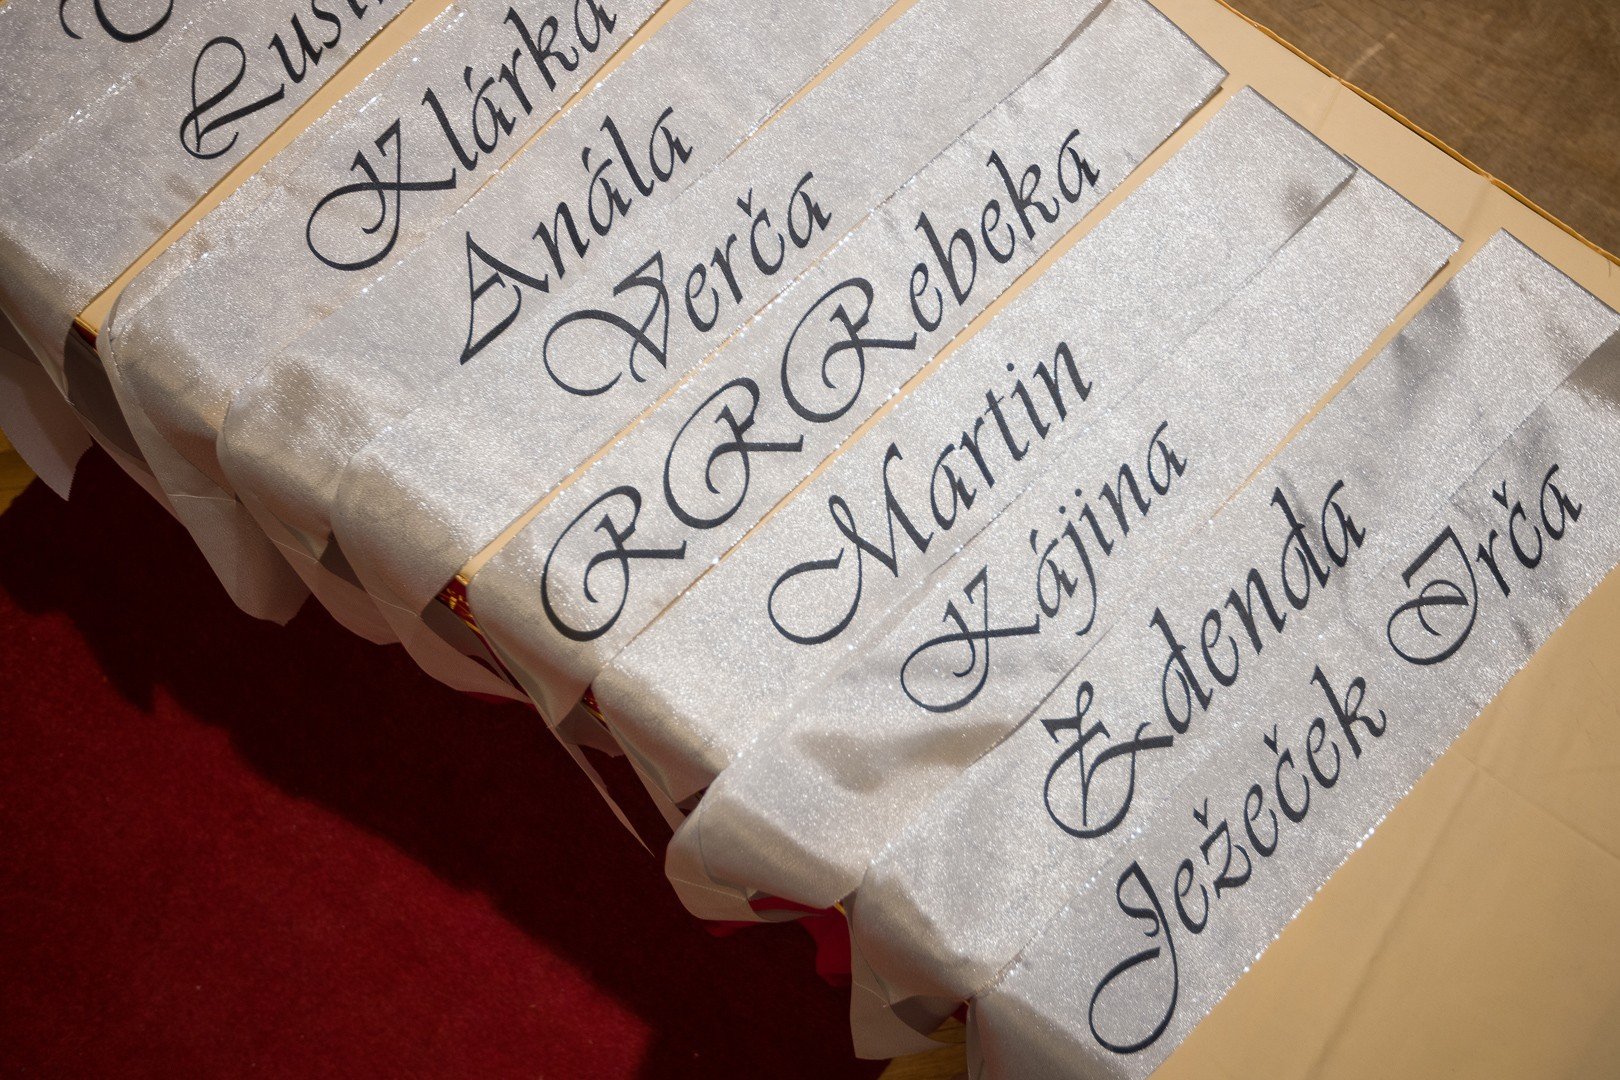 Klárka
Anála
Verča
RRRebeka
Martin
Kájina
Zdenda
Ježeček Jrča